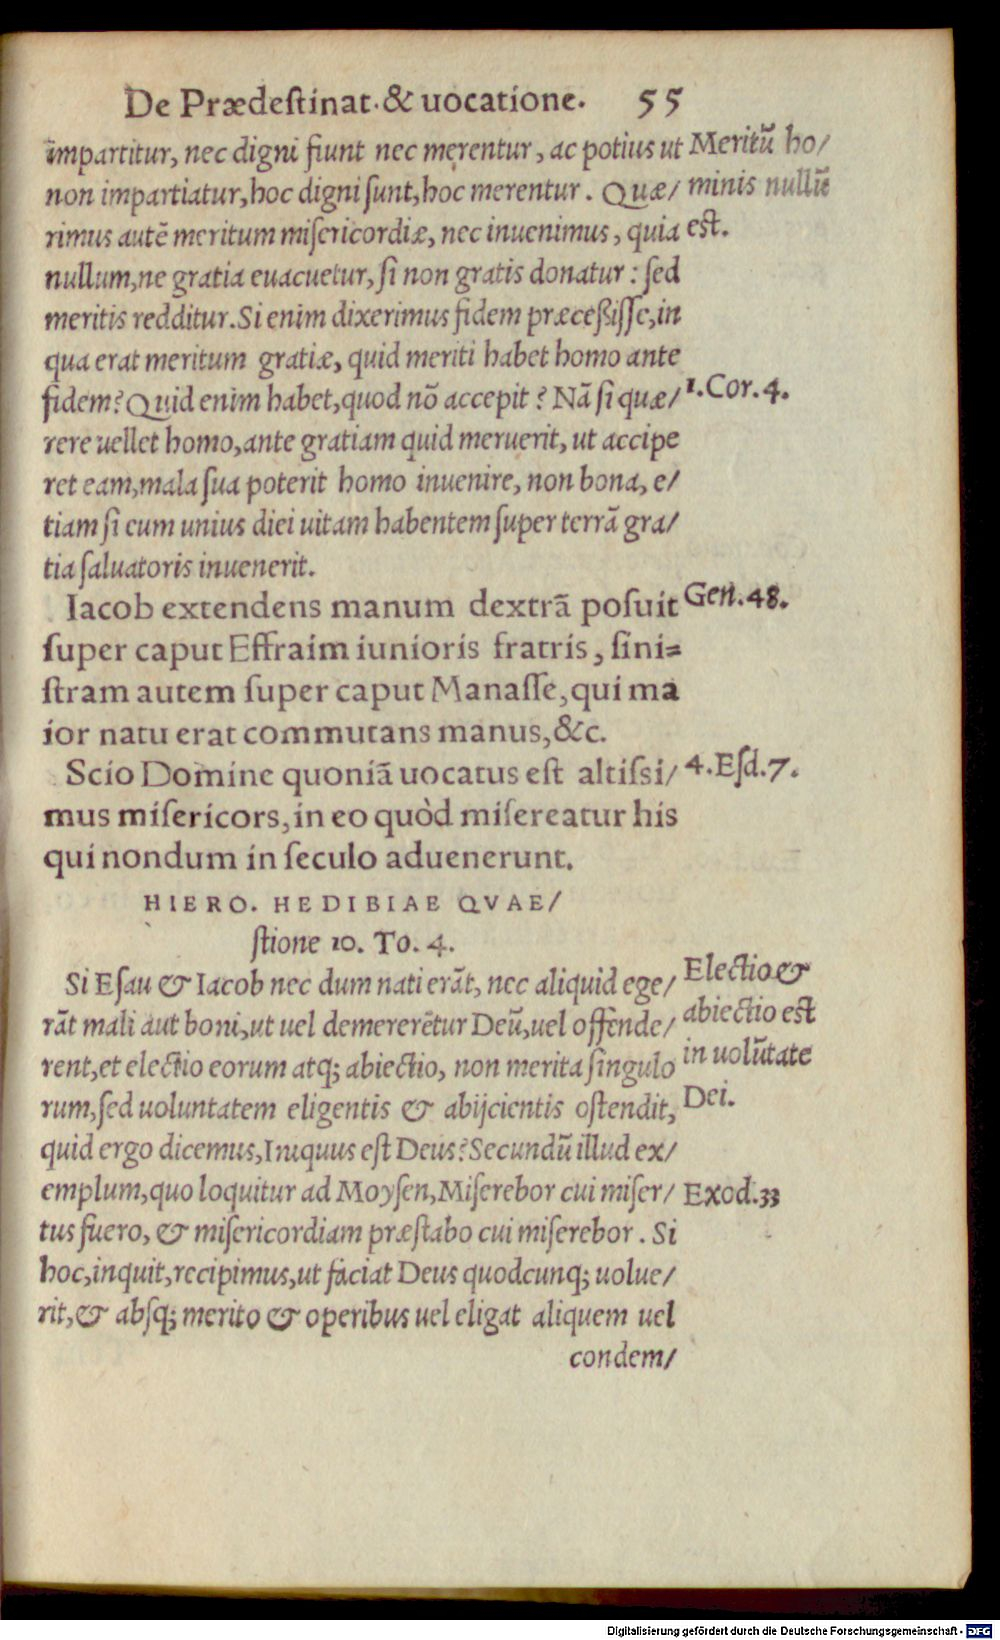 De Prædeſtinat. & uocatione. 55
impartitur, nec digni fiunt nec merentur, ac potius ut
non impartiatur, hoc digni ſunt, hoc merentur. Quæ/
rimus autē meritum miſericordiæ, nec inuenimus, quia
nullum, ne gratia euacuetur, ſi non gratis donatur: ſed
meritis redditur. Si enim dixerimus fidem præceſsiſſe, in
qua erat meritum gratiæ, quid meriti habet homo ante
fidem? Quid enim habet, quod nō accepit? Nā ſi quæ/
rere uellet homo, ante gratiam quid meruerit, ut accipe
ret eam, mala ſua poterit homo inuenire, non bona, e/
tiam ſi cum unius diei uitam habentem ſuper terrā gra/
tia ſaluatoris inuenerit.
Meritū ho/
minis nullū
est.
1. Cor. 4.
Iacob extendens manum dextrā poſuit
ſuper caput Effraim iunioris fratris, ſini=
ſtram autem ſuper caput Manaſſe, qui ma
ior natu erat commutans manus, &c.
Gen. 48.
Scio Domine quoniā uocatus eſt altiſsi/
mus miſericors, in eo quòd miſereatur his
qui nondum in ſeculo aduenerunt.
4. Eſd. 7.
HIERO. HEDIBIAE QVAE/
ſtione 10. To. 4.
Si Eſau & Iacob nec dum nati erāt, nec aliquid ege/
rāt mali aut boni, ut uel demererētur Deū, uel offende/
rent, et electio eorum atq; abiectio, non merita ſingulo
rum, ſed uoluntatem eligentis & abijcientis oſtendit,
quid ergo dicemus, Iniquus eſt Deus? Secundū illud ex/
emplum, quo loquitur ad Moyſen, Miſerebor cui miſer/
tus fuero, & miſericordiam præſtabo cui miſerebor. Si
hoc, inquit, recipimus, ut faciat Deus quodcunq; uolue/
rit, & abſq; merito & operibus uel eligat aliquem uel
condem/
Electio &
abiectio eſt
in uolūtate
Dei.
Exod. 33
Digitalisierung gefördert durch die Deutsche Forschungsgemeinschaft - DFG